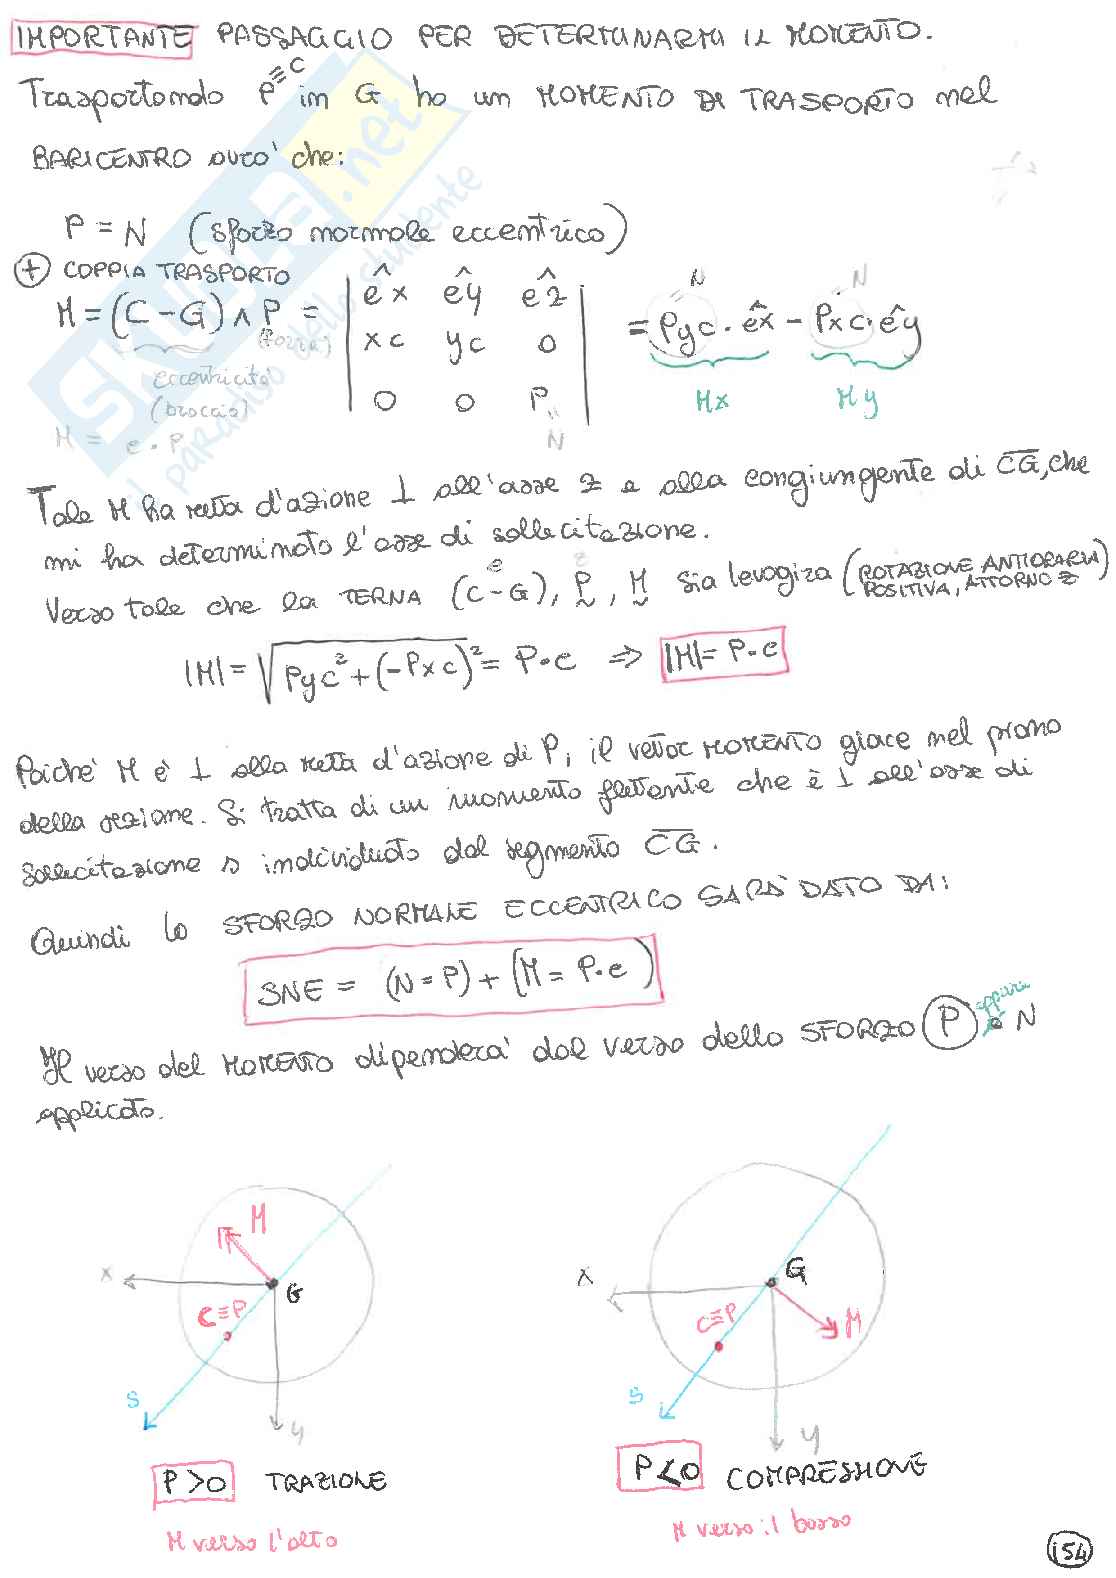 IMPORTANTE PASSAGGIO PER DETERMINARMI IL MOMENTO.
Trasportando P≡C in G ho un MOMENTO DI TRASPORTO nel
BARICENTRO che:
P = N (sforzo normale eccentrico)
⊕ COPPIA TRASPORTO
M = (C-G) ∧ P = | êx êy êz | = Pyc · êx - Pxc · êy
| xc yc 0 |
| 0 0 P |
= N
= N
= N
(forza)
eccentricità
(braccio)
M = e · P
Mx My
Tale M ha retta d'azione ⊥ all'asse z e alla congiungente di CG, che
mi ha determinato l'asse di sollecitazione.
Verso tale che la TERNA (C-G), P, M sia levogira (ROTAZIONE ANTIORARIA
POSITIVA, ATTORNO z)
e z
|M| = √Pyc² + (-Pxc)² = P·e ⇒ |M| = P·e
Poiché M è ⊥ alla retta d'azione di P, il vettor MOMENTO giace nel piano
della sezione. Si tratta di un momento flettente che è ⊥ all'asse di
sollecitazione s individuato dal segmento CG.
Quindi lo SFORZO NORMALE ECCENTRICO SARÀ DATO DA:
SNE = (N = P) + (M = P·e)
Il verso del MOMENTO dipenderà dal verso dello SFORZO P oppure N
applicato.
M
x
G
C≡P
s
y
P > 0 TRAZIONE
M verso l'alto
x
G
C≡P
M
s
y
P < 0 COMPRESSIONE
M verso il basso
154
SKUOLA.net
il paradiso dello studente